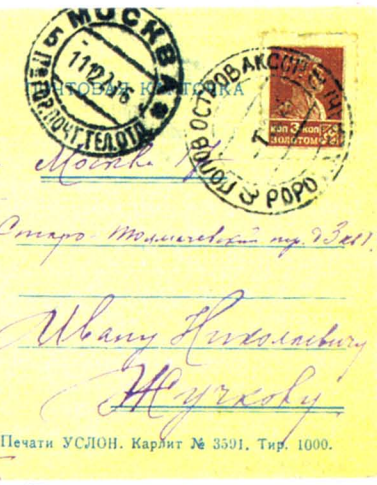 МОСКВА
11 12 2
5 ГОР.ПОЧТ.ТЕЛ.ОТД.
ПОЧТОВАЯ КАРТОЧКА
ОСТРОВ
КОП 3 КОП
ЗОЛОТОМ
Москва
Старо-Толмачевский пер. д 3 кв 1
Ивану Николаевичу
Жучкову
Печати УСЛОН. Карлит № 3591. Тир. 1000.